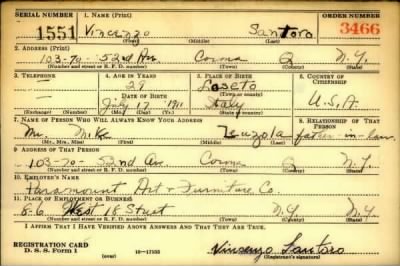 SERIAL NUMBER 1. NAME (Print) ORDER NUMBER
1551 Vincenzo Santoro 3466
(First) (Middle) (Last)
2. ADDRESS (Print)
103-70 - 52nd Av. Corona Q N.Y.
(Number and street or R. F. D. number) (Town) (County) (State)
3. TELEPHONE 4. AGE IN YEARS 5. PLACE OF BIRTH 6. COUNTRY OF CITIZENSHIP
29
(Town or county)
DATE OF BIRTH
July 17 1911 Italy U.S.A.
(Exchange) (Number) (Mo.) (Day) (Yr.) (State or country)
7. NAME OF PERSON WHO WILL ALWAYS KNOW YOUR ADDRESS 8. RELATIONSHIP OF THAT PERSON
Mr. Mike father-in-law
(Mr., Mrs., Miss) (First) (Middle) (Last)
9. ADDRESS OF THAT PERSON
103-70 - 52nd Av. Corona Q N.Y.
(Number and street or R. F. D. number) (Town) (County) (State)
10. EMPLOYER'S NAME
Paramount Art & Furniture Co.
11. PLACE OF EMPLOYMENT OR BUSINESS
8-6 West 18 Street N.Y. N.Y.
(Number and street or R. F. D. number) (Town) (County) (State)
I AFFIRM THAT I HAVE VERIFIED ABOVE ANSWERS AND THAT THEY ARE TRUE.
REGISTRATION CARD
D. S. S. Form 1 (over) 16-17105 Vincenzo Santoro
(Registrant's signature)